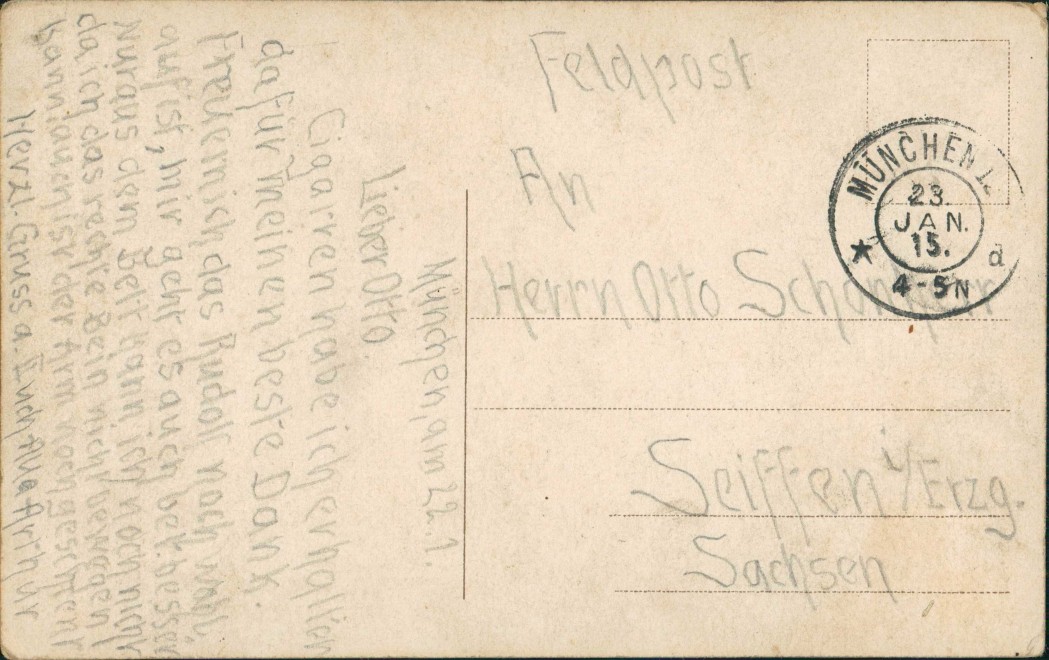 München, am 22. 1.
Lieber Otto.
Cigarren habe ich erhalten
dafür meinen beste Dank.
Freue mich das Rudolf noch
auf ist, mir geht es auch bet. besser
Nur aus dem Bett kann ich noch nicht
da ich das rechte Bein nicht bewegen
kann, auch ist der Arm noch geschient
Herzl. Gruss a. Euch Alle Arthur
Feldpost
An
Herrn Otto
Seiffen i/Erzg.
Sachsen
MÜNCHEN
23.
JAN.
15.
4-5N
d